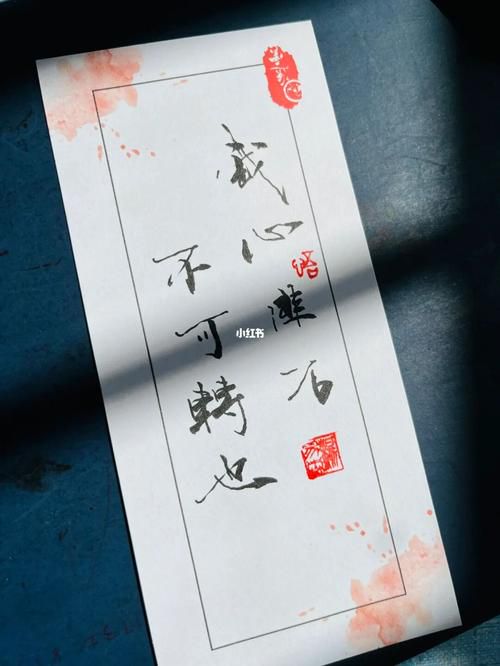 我心匪石
不可轉也
小红书